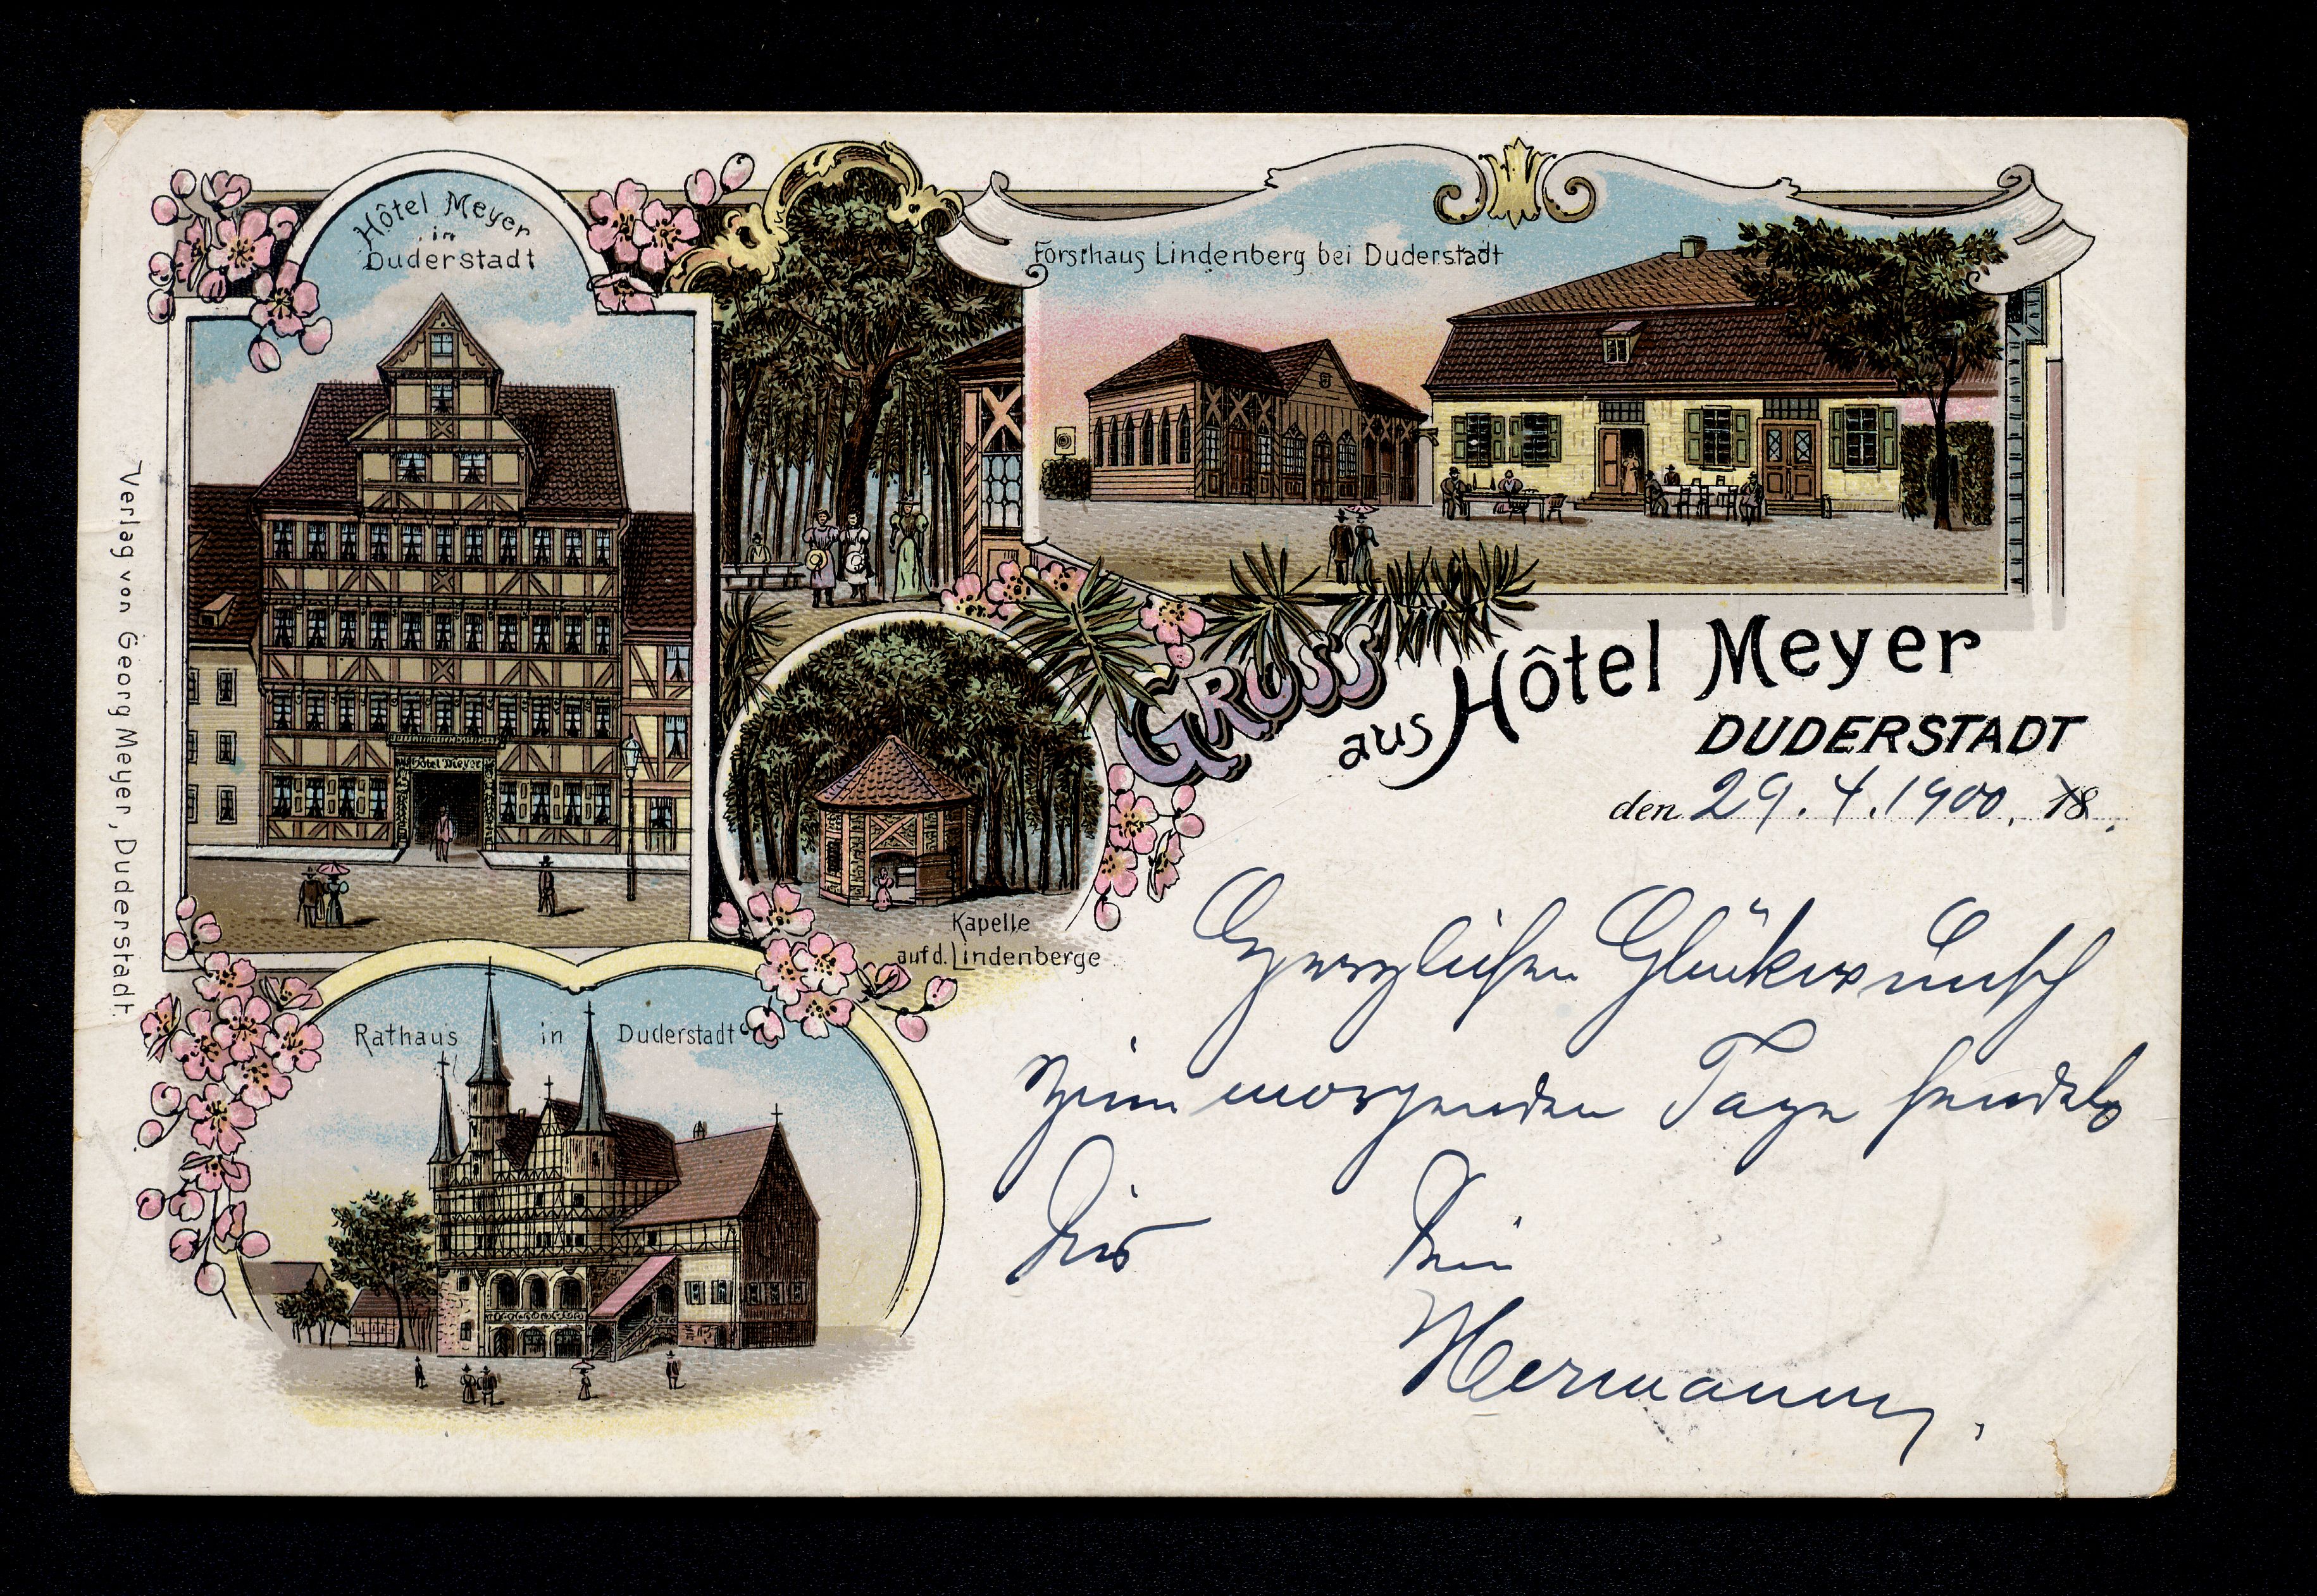 Hôtel Meyer
in
Duderstadt
Forsthaus Lindenberg bei Duderstadt
Hôtel Meyer
Kapelle
auf d. Lindenberge
Rathaus in Duderstadt
Verlag von Georg Meyer, Duderstadt.
GRUSS
aus Hôtel Meyer
DUDERSTADT
den 29.4.1900. 18
Herzlichen Glückwunsch
zum morgenden Tage sendet
Dir Dein
Hermann.